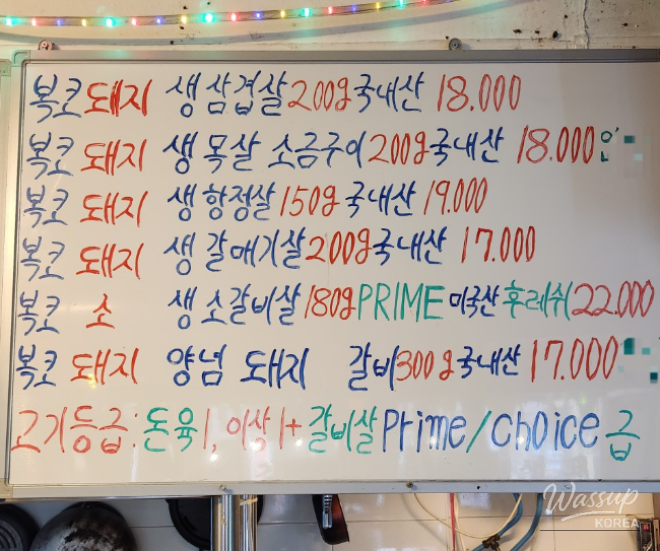 복코 돼지 생 삼겹살 200g 국내산 18.000
복코 돼지 생 목살 소금구이 200g 국내산 18.000
복코 돼지 생 항정살 150g 국내산 19.000
복코 돼지 생 갈매기살 200g 국내산 17.000
복코 소 생 소갈비살 180g PRIME 미국산 후레쉬 22.000
복코 돼지 양념 돼지 갈비 300g 국내산 17.000
고기등급: 돈육 1, 이상 1+ 갈비살 Prime/Choice 급
Wassup
KOREA